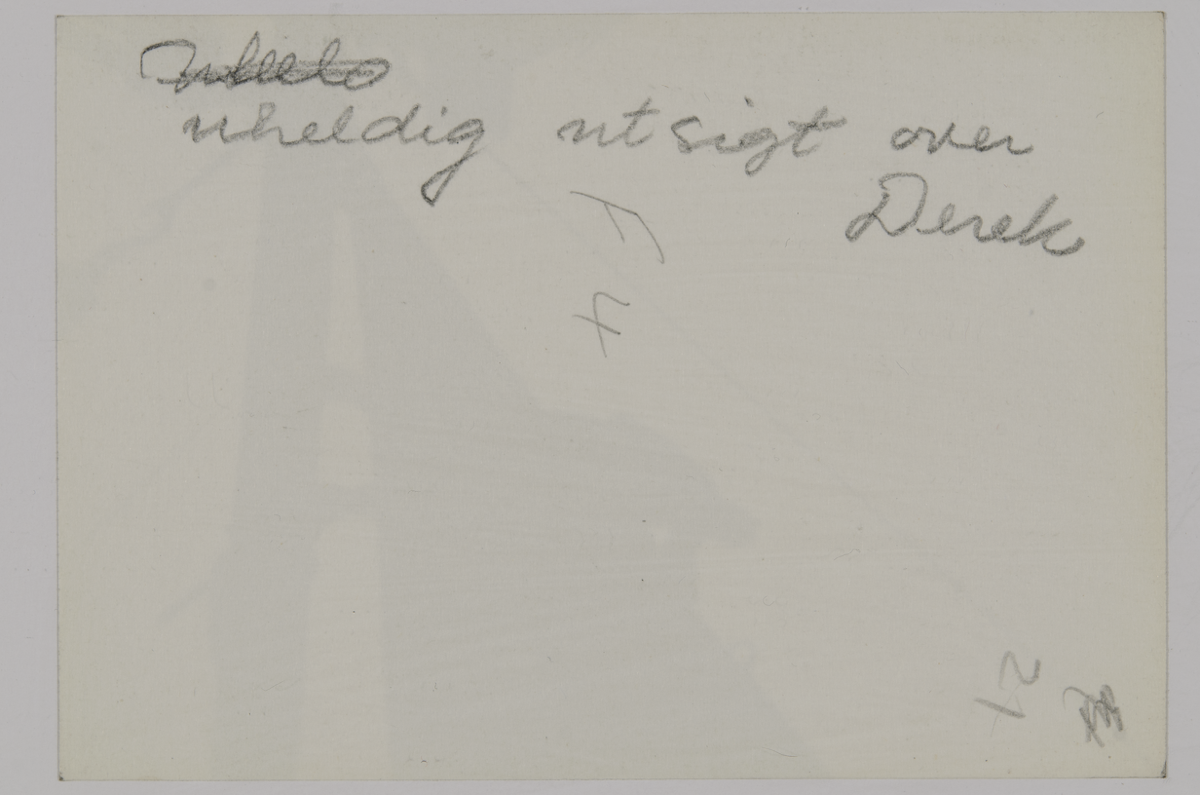 uheldig utsigt over
Derek
F
4
21